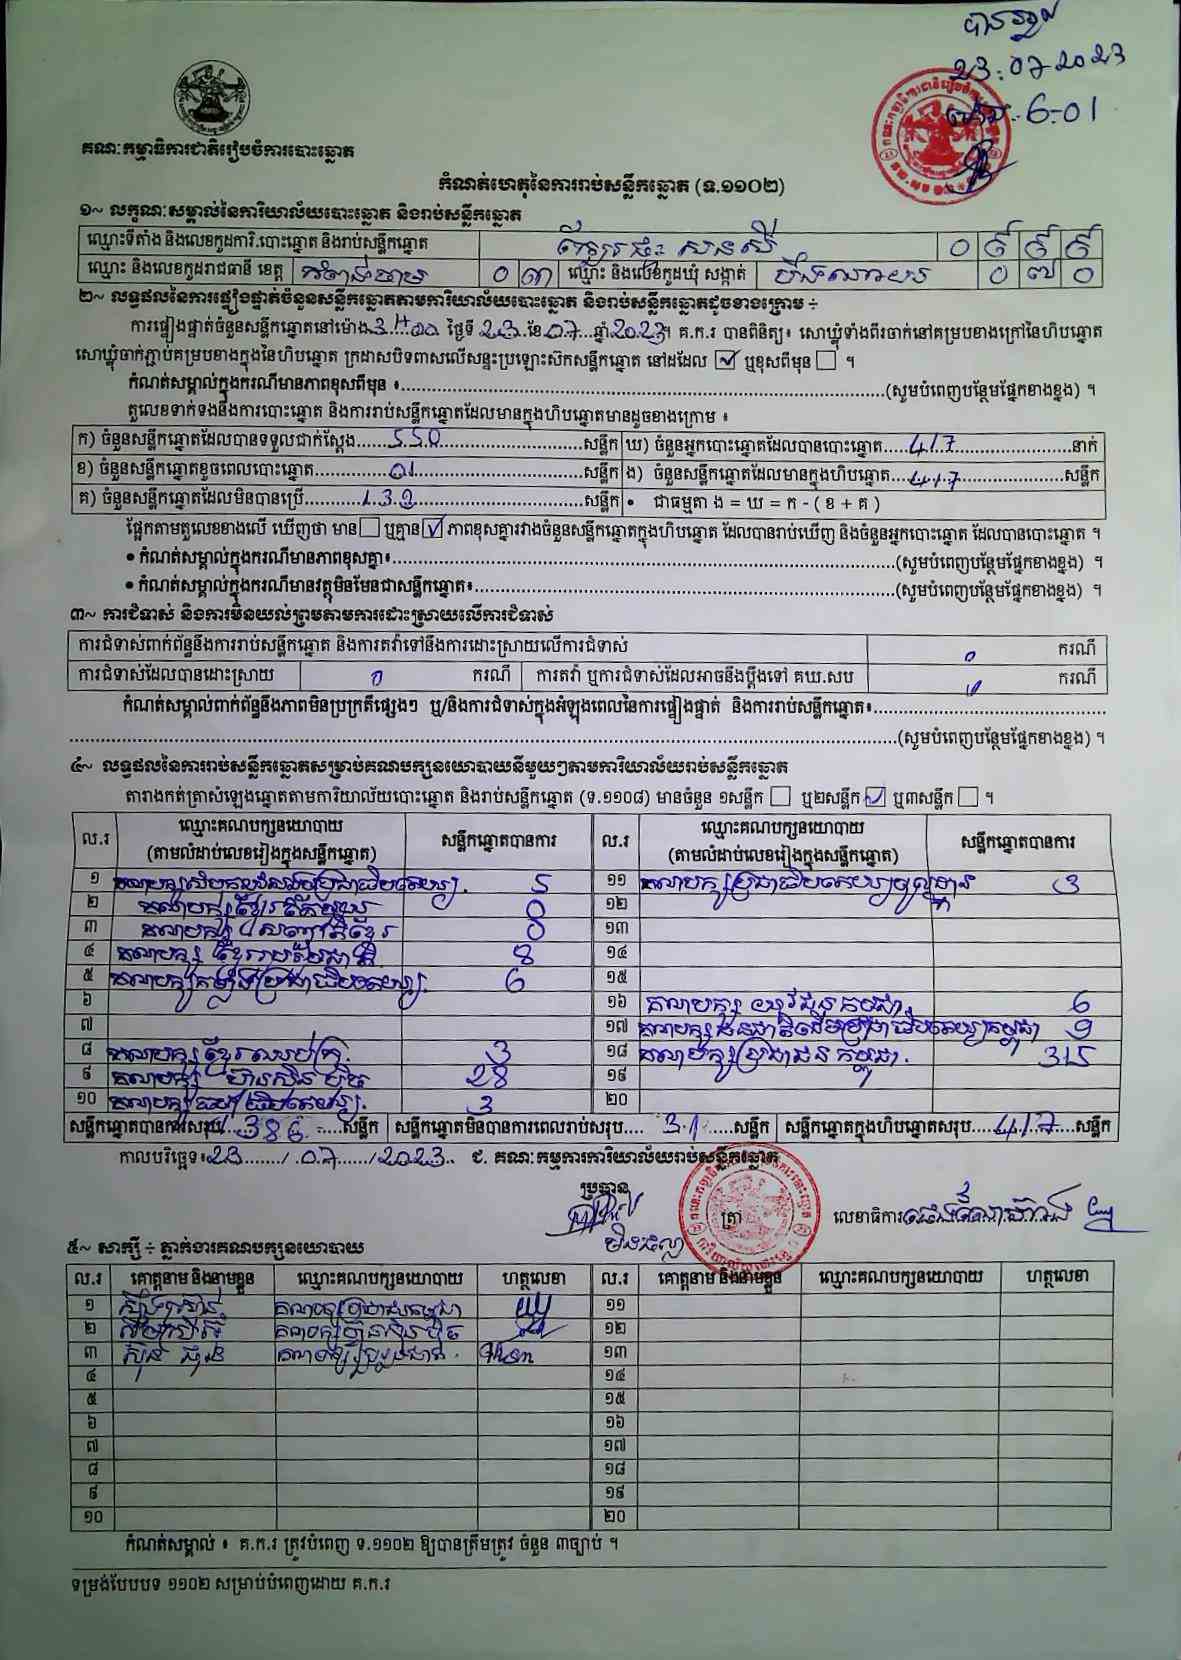 បានឃើញ
23.07.2023
6-01
គណៈកម្មាធិការជាតិរៀបចំការបោះឆ្នោត
កំណត់ហេតុនៃការរាប់សន្លឹកឆ្នោត (ទ.១១០២)
១~ លក្ខណៈសម្គាល់នៃការិយាល័យបោះឆ្នោត និងរាប់សន្លឹកឆ្នោត
ឈ្មោះទីតាំង និងលេខកូដការិ.បោះឆ្នោត និងរាប់សន្លឹកឆ្នោត
ឈ្មោះ និងលេខកូដរាជធានី ខេត្ត កំពង់ចាម ០ ៣ ឈ្មោះ និងលេខកូដឃុំ សង្កាត់ ០ ៧ ០
២~ លទ្ធផលនៃការផ្ទៀងផ្ទាត់ចំនួនសន្លឹកឆ្នោតតាមការិយាល័យបោះឆ្នោត និងរាប់សន្លឹកឆ្នោតដូចខាងក្រោម ÷
ការផ្ទៀងផ្ទាត់ចំនួនសន្លឹកឆ្នោតនៅម៉ោង 3H00 ថ្ងៃទី 23 ខែ 07 ឆ្នាំ 2023។ គ.ក.រ បានពិនិត្យ៖ សោឃ្លុំទាំងពីរចាក់នៅគម្របខាងក្រៅនៃហិបឆ្នោត
សោឃ្លុំចាក់ភ្ជាប់គម្របខាងក្នុងនៃហិបឆ្នោត ក្រដាសបិទពាសលើសន្ទះប្រឡោះស៊កសន្លឹកឆ្នោត នៅដដែល ☑ ឬខុសពីមុន ☐ ។
កំណត់សម្គាល់ក្នុងករណីមានភាពខុសពីមុន ៖..........(សូមបំពេញបន្ថែមផ្នែកខាងខ្នង) ។
តួលេខទាក់ទងនឹងការបោះឆ្នោត និងការរាប់សន្លឹកឆ្នោតដែលមានក្នុងហិបឆ្នោតមានដូចខាងក្រោម ៖
ក) ចំនួនសន្លឹកឆ្នោតដែលបានទទួលជាក់ស្ដែង.....550.....សន្លឹក ឃ) ចំនួនអ្នកបោះឆ្នោតដែលបានបោះឆ្នោត.....417.....នាក់
ខ) ចំនួនសន្លឹកឆ្នោតខូចពេលបោះឆ្នោត.....01.....សន្លឹក ង) ចំនួនសន្លឹកឆ្នោតដែលមានក្នុងហិបឆ្នោត.....417.....សន្លឹក
គ) ចំនួនសន្លឹកឆ្នោតដែលមិនបានប្រើ.....132.....សន្លឹក • ជាធម្មតា ង = ឃ = ក - ( ខ + គ )
ផ្អែកតាមតួលេខខាងលើ ឃើញថា មាន ☐ ឬគ្មាន ☑ ភាពខុសគ្នារវាងចំនួនសន្លឹកឆ្នោតក្នុងហិបឆ្នោត ដែលបានរាប់ឃើញ និងចំនួនអ្នកបោះឆ្នោត ដែលបានបោះឆ្នោត ។
• កំណត់សម្គាល់ក្នុងករណីមានភាពខុសគ្នា៖..........(សូមបំពេញបន្ថែមផ្នែកខាងខ្នង) ។
• កំណត់សម្គាល់ក្នុងករណីមានវត្ថុមិនមែនជាសន្លឹកឆ្នោត៖..........(សូមបំពេញបន្ថែមផ្នែកខាងខ្នង) ។
៣~ ការជំទាស់ និងការមិនយល់ព្រមតាមការដោះស្រាយលើការជំទាស់
ការជំទាស់ពាក់ព័ន្ធនឹងការរាប់សន្លឹកឆ្នោត និងការតវ៉ាទៅនឹងការដោះស្រាយលើការជំទាស់ 0 ករណី
ការជំទាស់ដែលបានដោះស្រាយ 0 ករណី ការតវ៉ា ឬការជំទាស់ដែលអាចនឹងប្ដឹងទៅ គឃ.សប 0 ករណី
កំណត់សម្គាល់ពាក់ព័ន្ធនឹងភាពមិនប្រក្រតីផ្សេងៗ ឬ/និងការជំទាស់ក្នុងអំឡុងពេលនៃការផ្ទៀងផ្ទាត់ និងការរាប់សន្លឹកឆ្នោត៖..........
..........(សូមបំពេញបន្ថែមផ្នែកខាងខ្នង) ។
៤~ លទ្ធផលនៃការរាប់សន្លឹកឆ្នោតសម្រាប់គណបក្សនយោបាយនីមួយៗតាមការិយាល័យរាប់សន្លឹកឆ្នោត
តារាងកត់ត្រាសំឡេងឆ្នោតតាមការិយាល័យបោះឆ្នោត និងរាប់សន្លឹកឆ្នោត (ទ.១១០៨) មានចំនួន ១សន្លឹក ☐ ឬ២សន្លឹក ☑ ឬ៣សន្លឹក ☐ ។
ល.រ ឈ្មោះគណបក្សនយោបាយ (តាមលំដាប់លេខរៀងក្នុងសន្លឹកឆ្នោត) សន្លឹកឆ្នោតបានការ ល.រ ឈ្មោះគណបក្សនយោបាយ (តាមលំដាប់លេខរៀងក្នុងសន្លឹកឆ្នោត) សន្លឹកឆ្នោតបានការ
១ 5 ១១ 3
២ 0 ១២
៣ 0 ១៣
៤ គណបក្ស ខ្មែររួបរួមជាតិ 8 ១៤
៥ 6 ១៥
៦ ១៦ គណបក្ស យុវជនកម្ពុជា 6
៧ ១៧ 9
៨ គណបក្ស ខ្មែរឈប់ក្រ 3 ១៨ គណបក្សប្រជាជនកម្ពុជា 315
៩ គណបក្ស ហ៊្វុនស៊ិនប៉ិច 28 ១៩
១០ 3 ២០
សន្លឹកឆ្នោតបានការសរុប....386....សន្លឹក សន្លឹកឆ្នោតមិនបានការពេលរាប់សរុប....31....សន្លឹក សន្លឹកឆ្នោតក្នុងហិបឆ្នោតសរុប....417....សន្លឹក
កាលបរិច្ឆេទ៖ 23 / 07 / 2023 ជ. គណៈកម្មការការិយាល័យរាប់សន្លឹកឆ្នោត
ប្រធាន
ត្រា លេខាធិការ
៥~ សាក្សី ÷ ភ្នាក់ងារគណបក្សនយោបាយ
ល.រ គោត្តនាម និងនាមខ្លួន ឈ្មោះគណបក្សនយោបាយ ហត្ថលេខា ល.រ គោត្តនាម និងនាមខ្លួន ឈ្មោះគណបក្សនយោបាយ ហត្ថលេខា
១ គណបក្សប្រជាជនកម្ពុជា ១១
២ គណបក្សហ៊្វុនស៊ិនប៉ិច ១២
៣ ១៣
៤ ១៤
៥ ១៥
៦ ១៦
៧ ១៧
៨ ១៨
៩ ១៩
១០ ២០
កំណត់សម្គាល់ ៖ គ.ក.រ ត្រូវបំពេញ ទ.១១០២ ឱ្យបានត្រឹមត្រូវ ចំនួន ៣ច្បាប់ ។
ទម្រង់បែបបទ ១១០២ សម្រាប់បំពេញដោយ គ.ក.រ